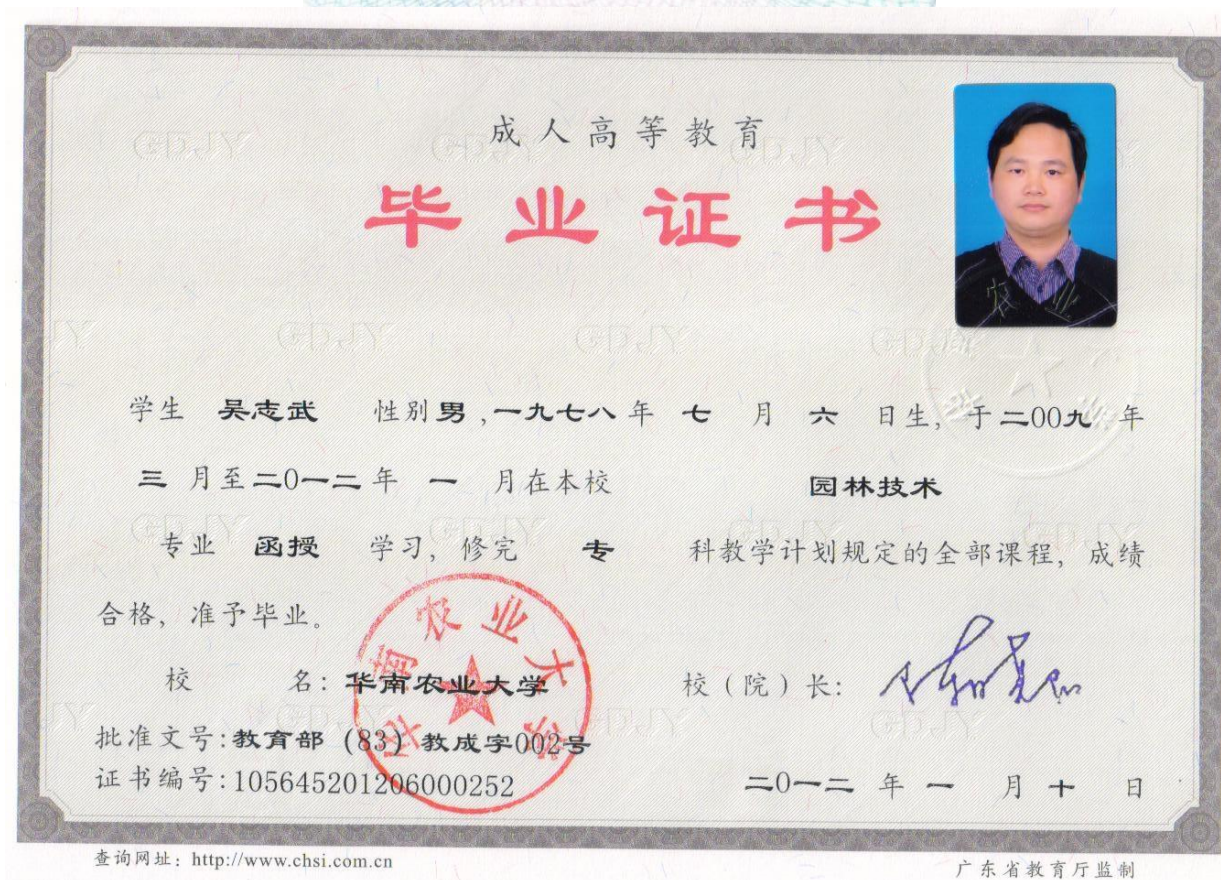 成人高等教育
毕业证书
学生 吴志武 性别男,一九七八年 七 月 六 日生, 于二00九年
三 月至二0一二年 一 月在本校 园林技术
专业 函授 学习, 修完 专 科教学计划规定的全部课程, 成绩
合格, 准予毕业。
校 名: 华南农业大学
校(院)长:
批准文号:教育部 (83) 教成字002号
证书编号:105645201206000252
二0一二 年 一 月 十 日
华南农业大学
查询网址: http://www.chsi.com.cn
广东省教育厅监制
GDJY